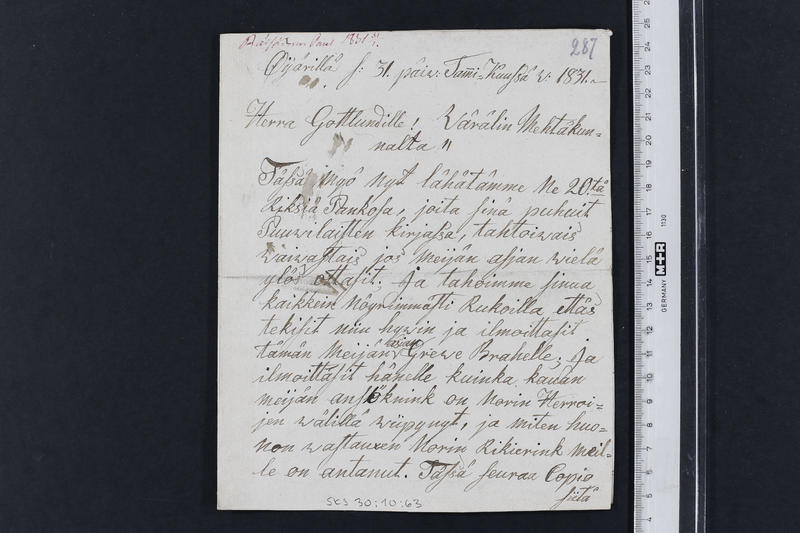 1831
287
Öijärillä f: 31. päiw: Tami-Kuussa w: 1831.
Herra Gottlundille! Wärälin Mehtäkun=
nalta "
Tässä myö nyt lähätämme Ne 20:tä
Riksiä Pankosa, joita sinä puhuit
Puuwelaisten kirjassa, tahtoiwais
waiwastais jos meijän asjan wielä
ylös ottasit. Ja tahoimme sinua
kaikkein Nöyrimmästi Rukoilla ettäs
tekisit niin hywin ja ilmoittasit
tämän Meijän asjan Grewe Brahelle, Ja
ilmoittasit hänelle kuinka kauan
meijän ansöknink on Norin Herroi=
jen wälillä wiipynyt, ja miten huo=
non wastauxen Norin Rikierink Meil=
le on antanut. Tässä seuraa Copia
siitä
SKS 30:10:63
GERMANY
M+R
1130